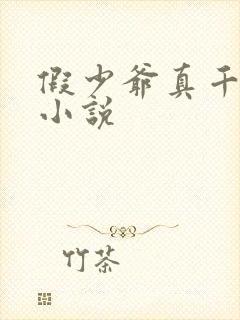 假少爷真千
小说
竹茶